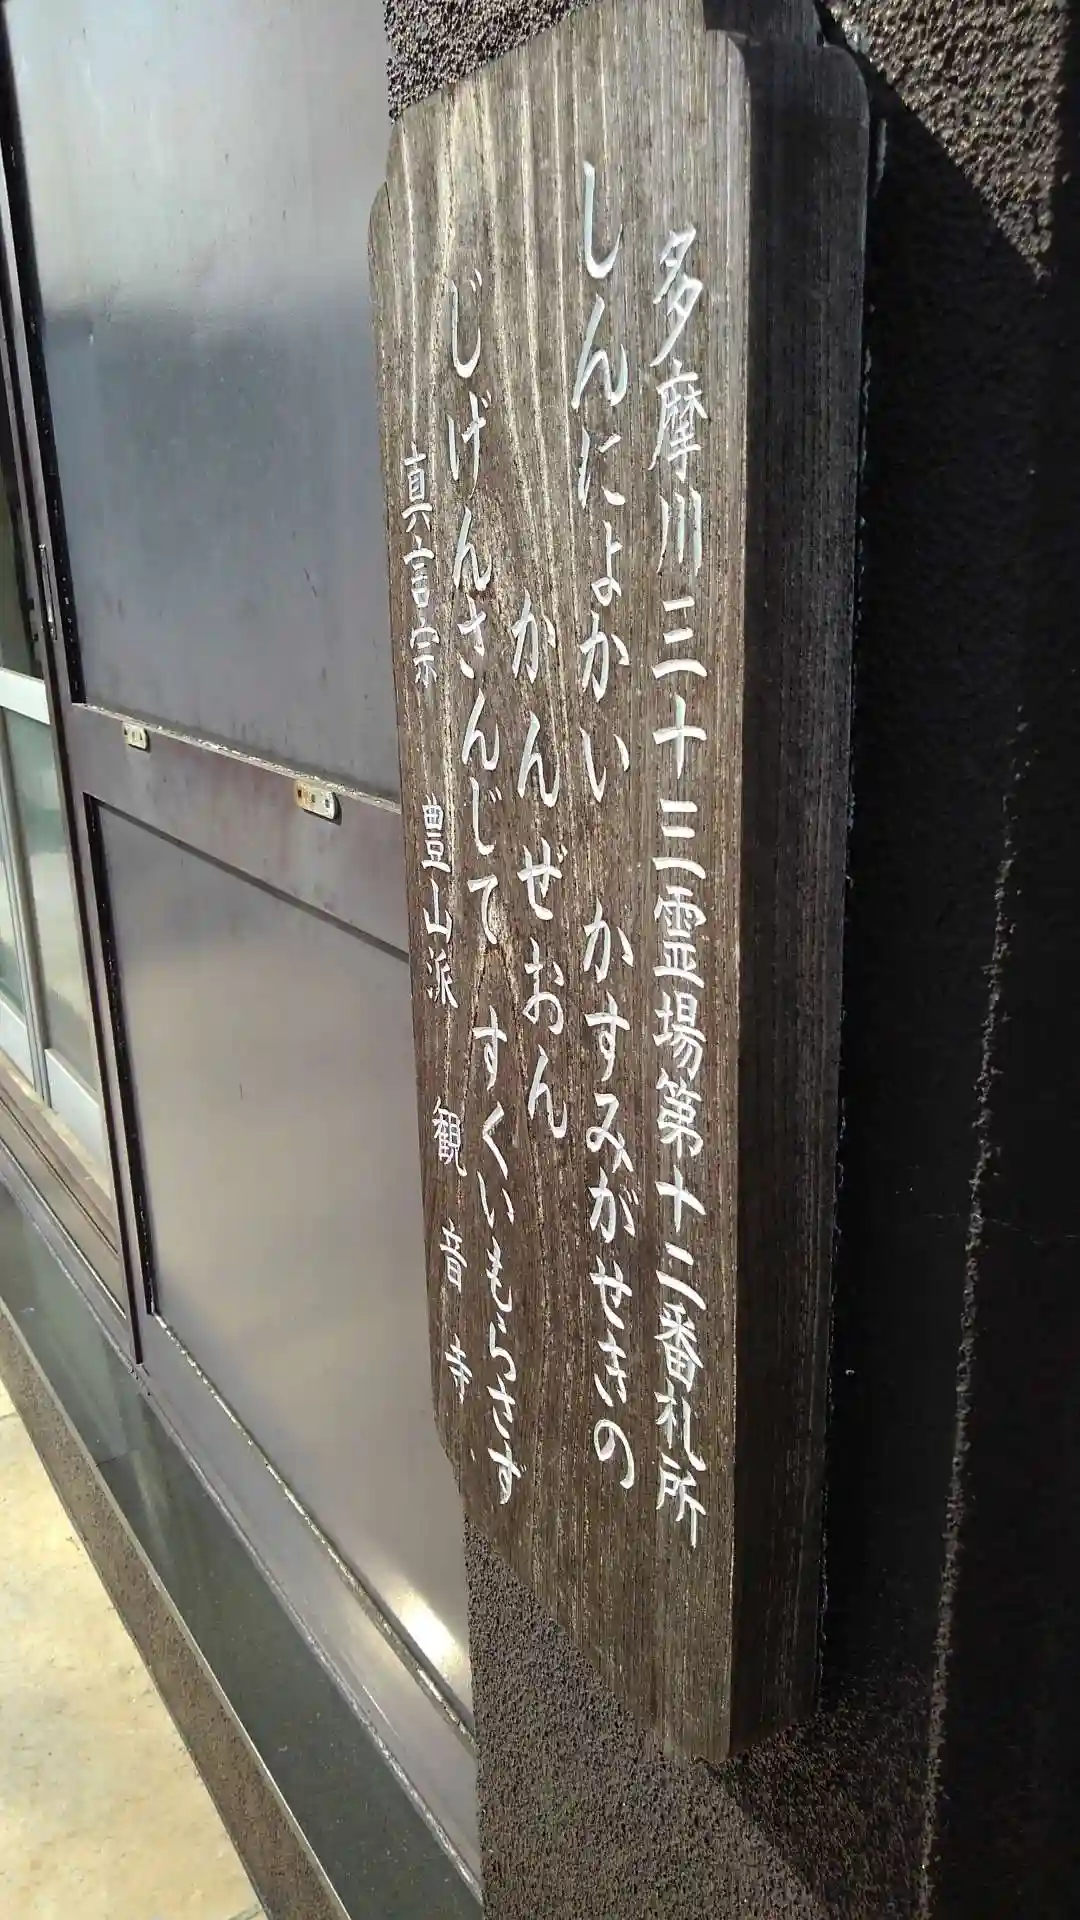 多摩川三十三霊場第十二番札所
しんによかい かすみがせきの
かんぜおん
じげんさんじて すくいもらさず
真言宗 豊山派 観音寺